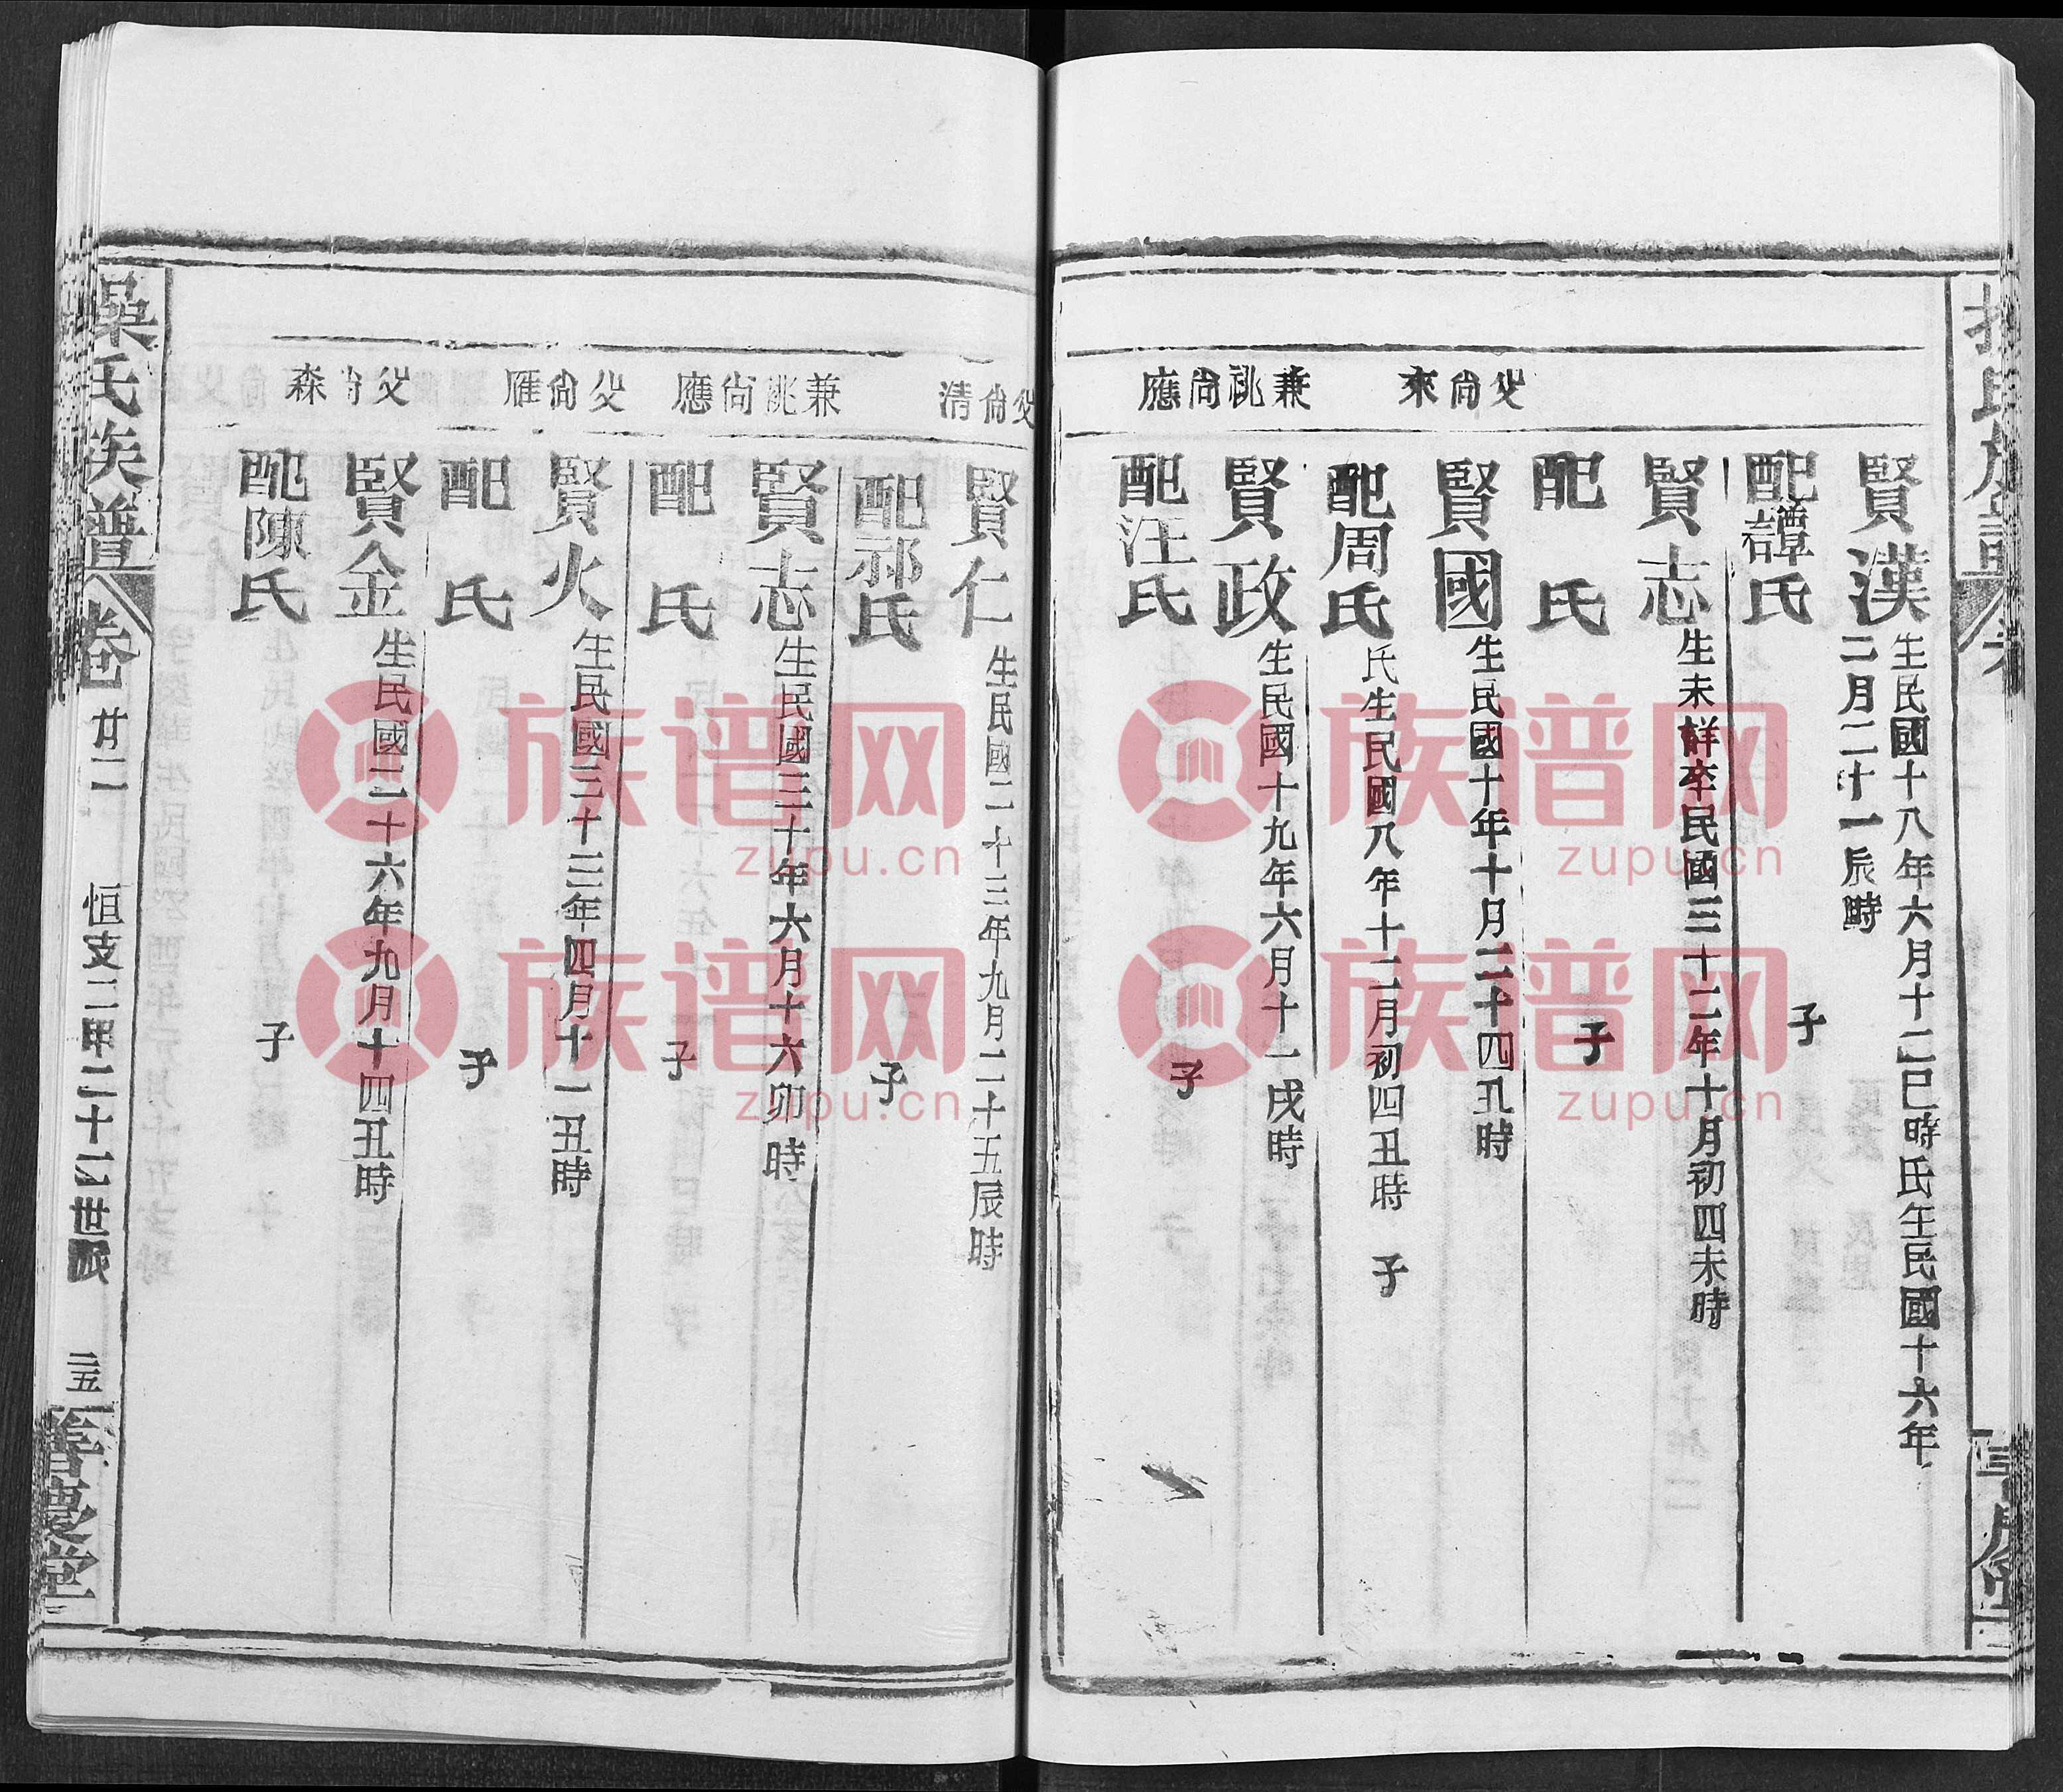 賢漢
生民國十八年六月十二巳時氏生民國十六年
二月二十一辰時
配譚氏
子
賢志
生未詳卒民國三十二年十月初四未時
配 氏
子
父尙來
賢國
生民國十年十月二十四丑時
配周氏
氏生民國八年十二月初四丑時 子
兼祧尙應
賢政
生民國十九年六月十一戌時
配汪氏
子
父尙清
賢仁
生民國二十三年九月二十五辰時
配祁氏
子
兼祧尙應
賢志
生民國三十年六月十六卯時
配 氏
子
父尙雁
賢火
生民國三十三年四月十一丑時
配 氏
子
父尙森
賢金
生民國二十六年九月十四丑時
配陳氏
子
氏族譜
卷廿二
恒支二甲二十二世派
三五
慶堂
族谱网
zupu.cn
族谱网
zupu.cn
族谱网
zupu.cn
族谱网
zupu.cn